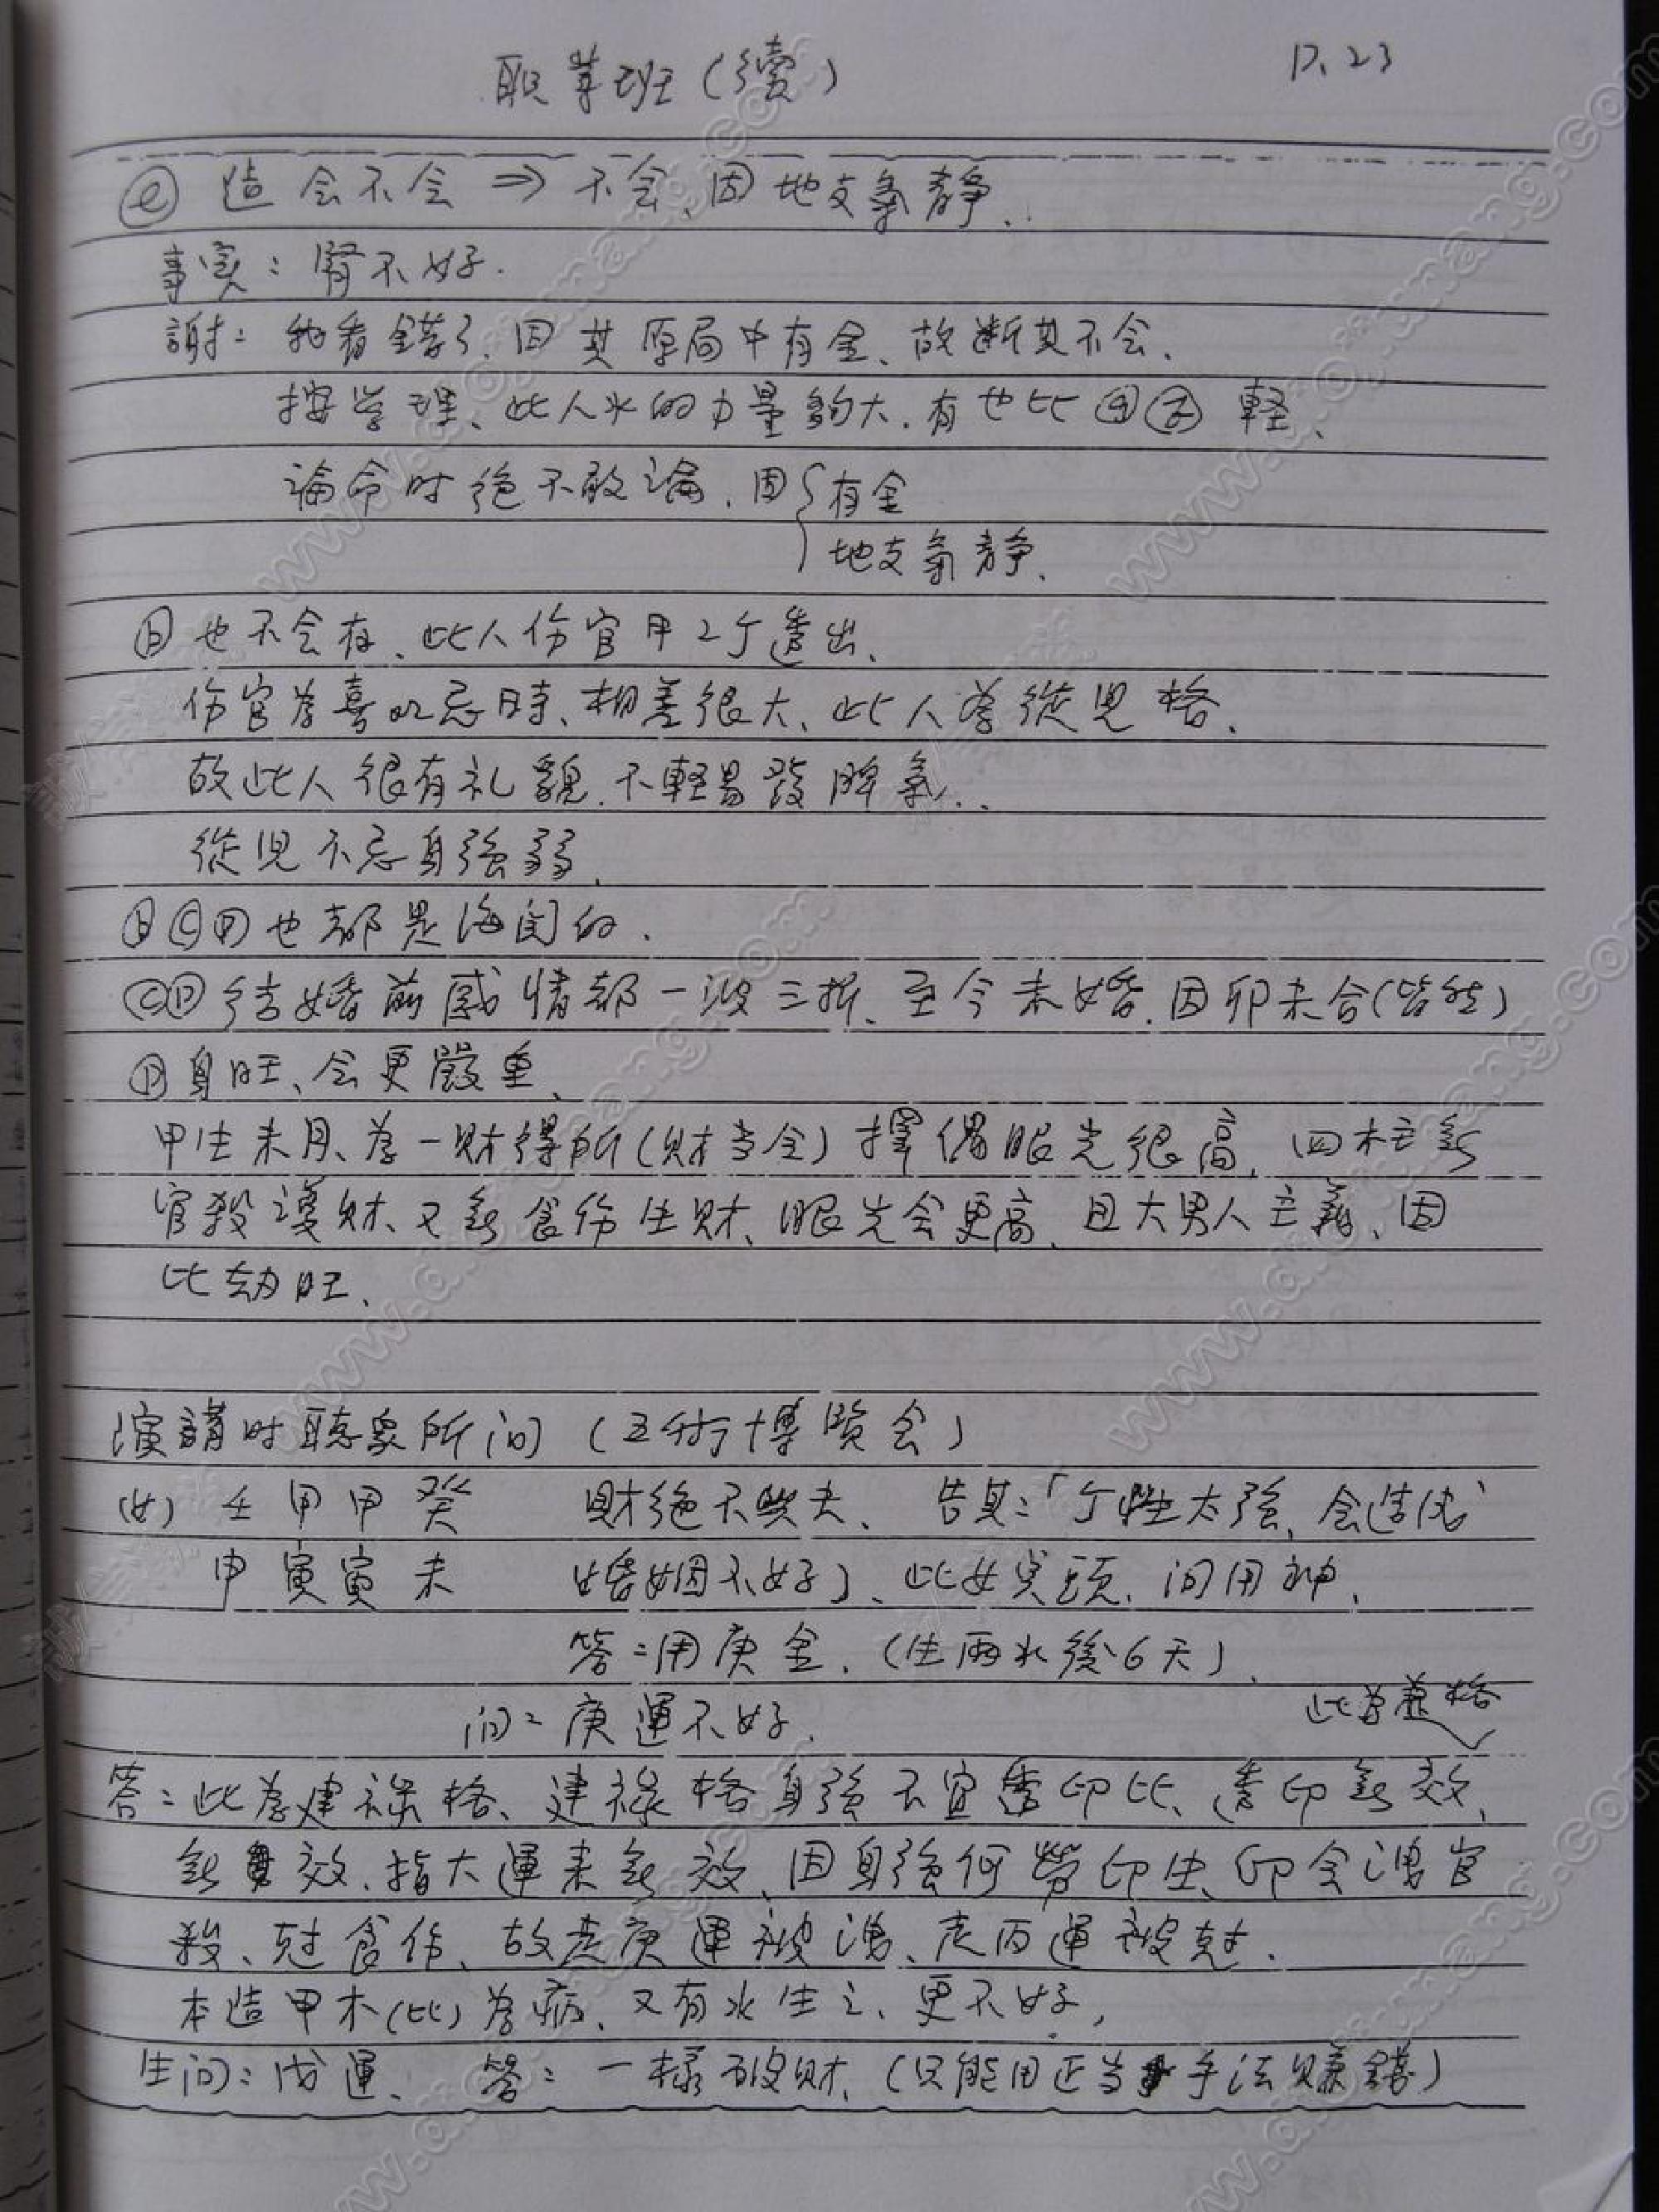 职業班(續) P.23
ⓔ 造会不会 ⇒ 不会、因地支氣靜.
事实:腎不好.
謝:我看錯了.因其原局中有金、故断其不会.
按学理、此人水的力量夠大.有也比 輕、
論命时絕不敢論.因{有金
地支氣靜.
也不会有、此人伤官甲2个透出、
伤官為喜or忌時、相差很大、此人為從兒格、
故此人很有礼貌.不輕易發脾氣..
從兒不忌身強弱.
ⓑⓒⓓ也都是海関的.
ⓒⓓ結婚前感情都一波三折、至今未婚.因卯未合(皆然)
ⓓ身旺、会更嚴重、
甲生未月、為一財得所(財当令)擇偶眼光很高、四柱無
官殺護財、又無食伤生財、眼光会更高、且大男人主義、因
比劫旺、
演講时聽眾所问(五術博览会)
(女) 壬甲甲癸 財絕不缺夫、告其:「个性太強、会造成
申寅寅未 婚姻不好」、此女点頭、问用神、
答:用庚金.(生雨水後6天)
问:庚運不好. 此為兼格
答:此為建祿格、建祿格身強不宜透印比、透印無效、
無效.指大運来無效、因身強何勞印生、印会洩官
殺、尅食伤、故走庚運被洩、走丙運被尅.
本造甲木(比)為病、又有水生之、更不好,
生问:戊運、 答:一樣破財、(只能用正当手法賺錢)